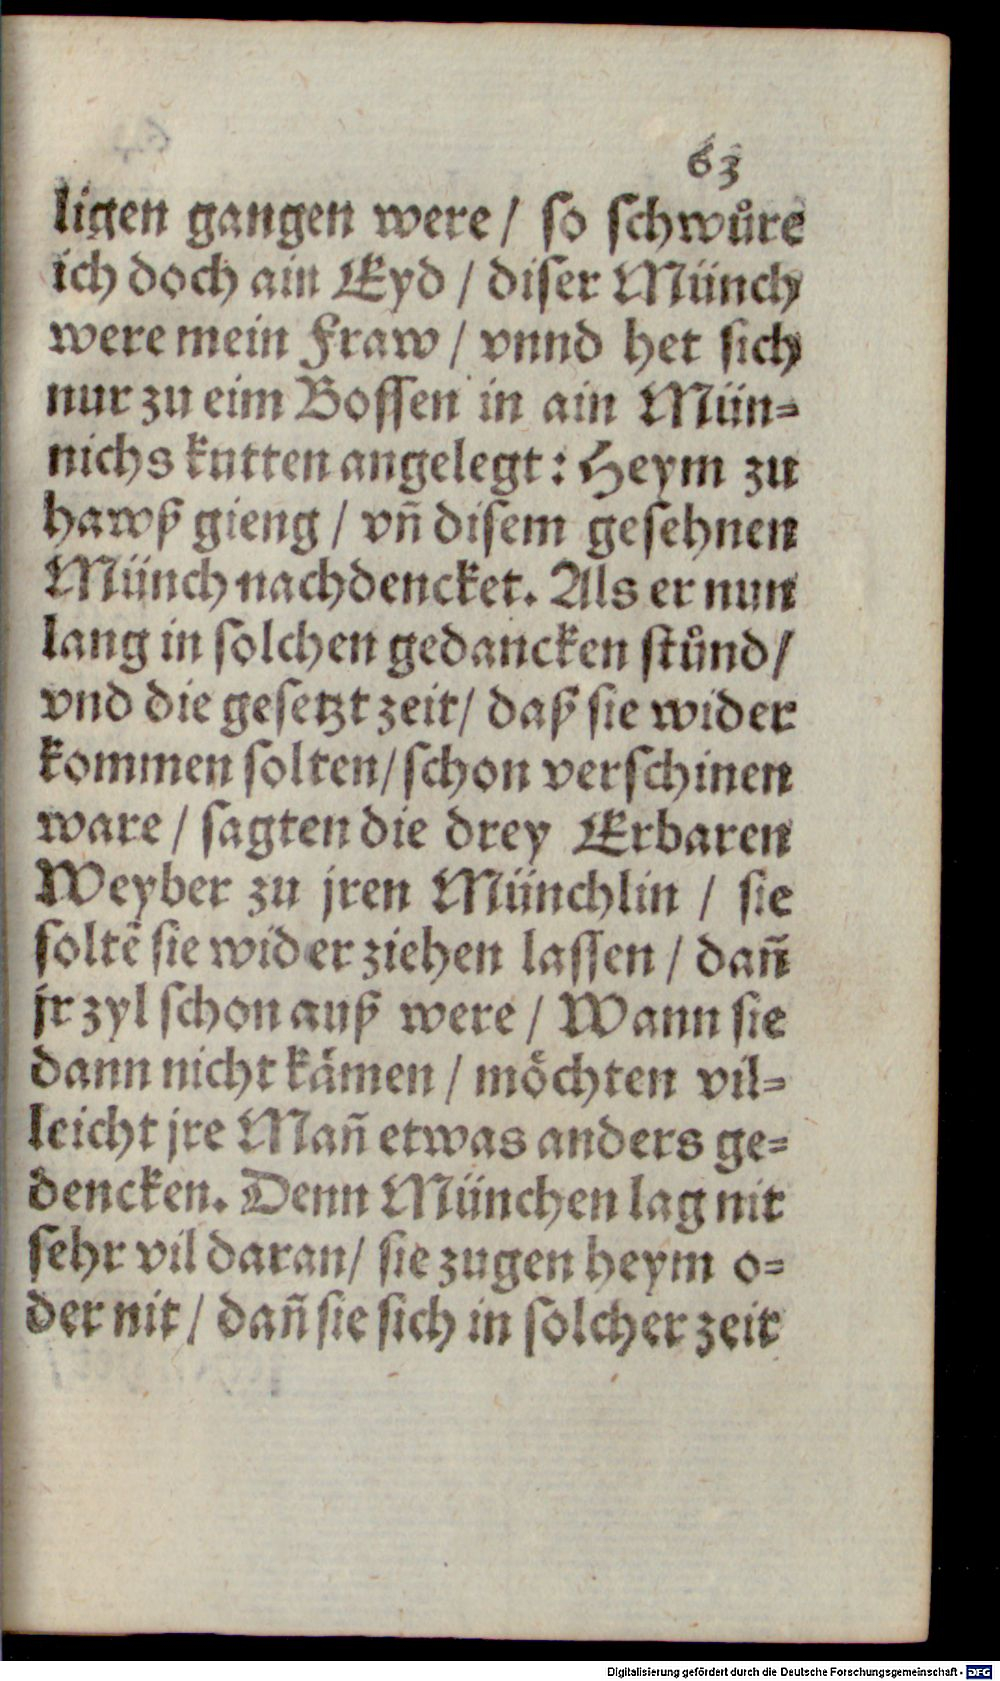 63
ligen gangen were / so schwůre
ich doch ain Eyd / diser Münch
were mein Fraw / vnnd het sich
nur zu eim Bossen in ain Mün-
nichs kutten angelegt: Heym zu
hawß gieng / vñ disem gesehnen
Münch nachdencket. Als er nun
lang in solchen gedancken stůnd /
vnd die gesetzt zeit / daß sie wider
kommen solten / schon verschinen
ware / sagten die drey Erbaren
Weyber zu jren Münchlin / sie
soltē sie wider ziehen lassen / dañ
jr zyl schon auß were / Wann sie
dann nicht kämen / möchten vil-
leicht jre Mañ etwas anders ge-
dencken. Denn München lag nit
sehr vil daran / sie zugen heym o-
der nit / dañ sie sich in solcher zeit
Digitalisierung gefördert durch die Deutsche Forschungsgemeinschaft - DFG